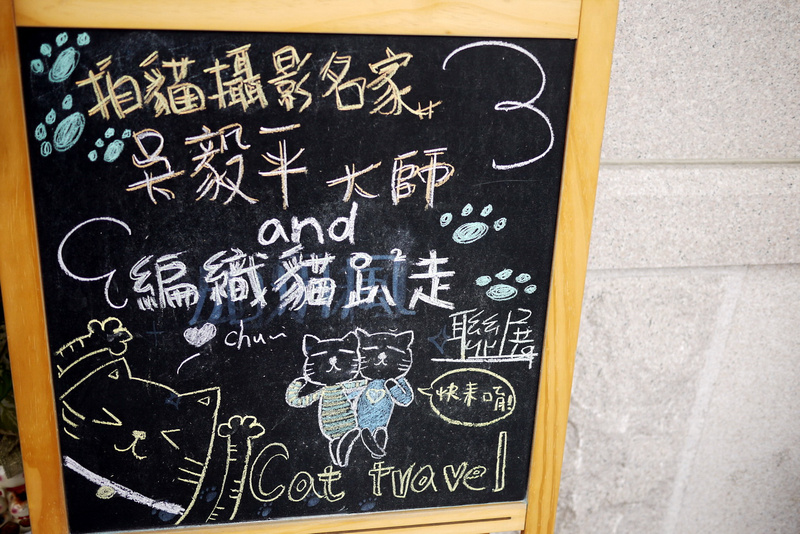 拍貓攝影名家
吳毅平大師
and
編織貓趴²走
聯展
chu~
快來唷!
Cat travel